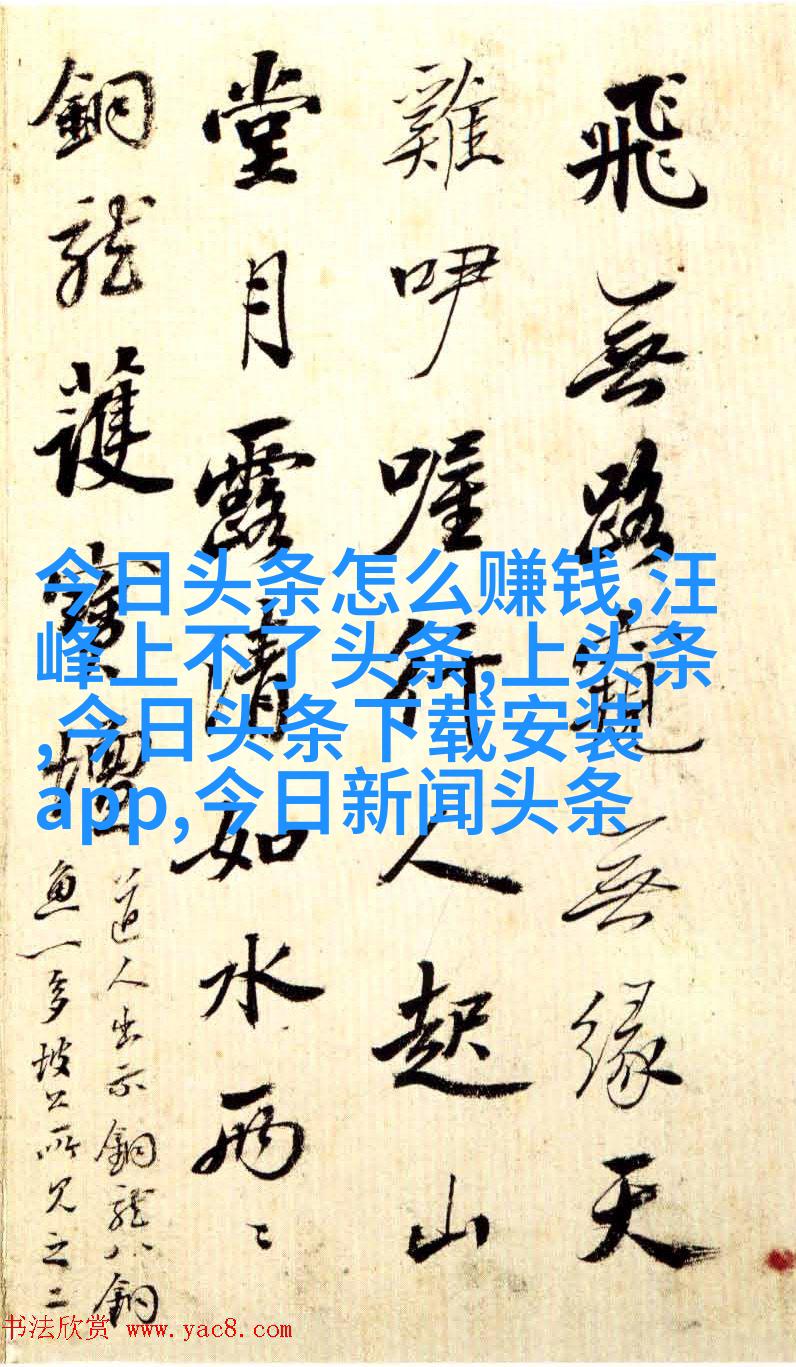 飛無路窺無緣天
雞咿喔行人起山
堂月露清如水兩〻
銅龍護寶
道人出示銅龍八銅
魚一多坡公所見之二
今日头条怎么赚钱,汪
峰上不了头条,上头条
,今日头条下载安装
app,今日新闻头条
书法欣赏 www.yac8.com